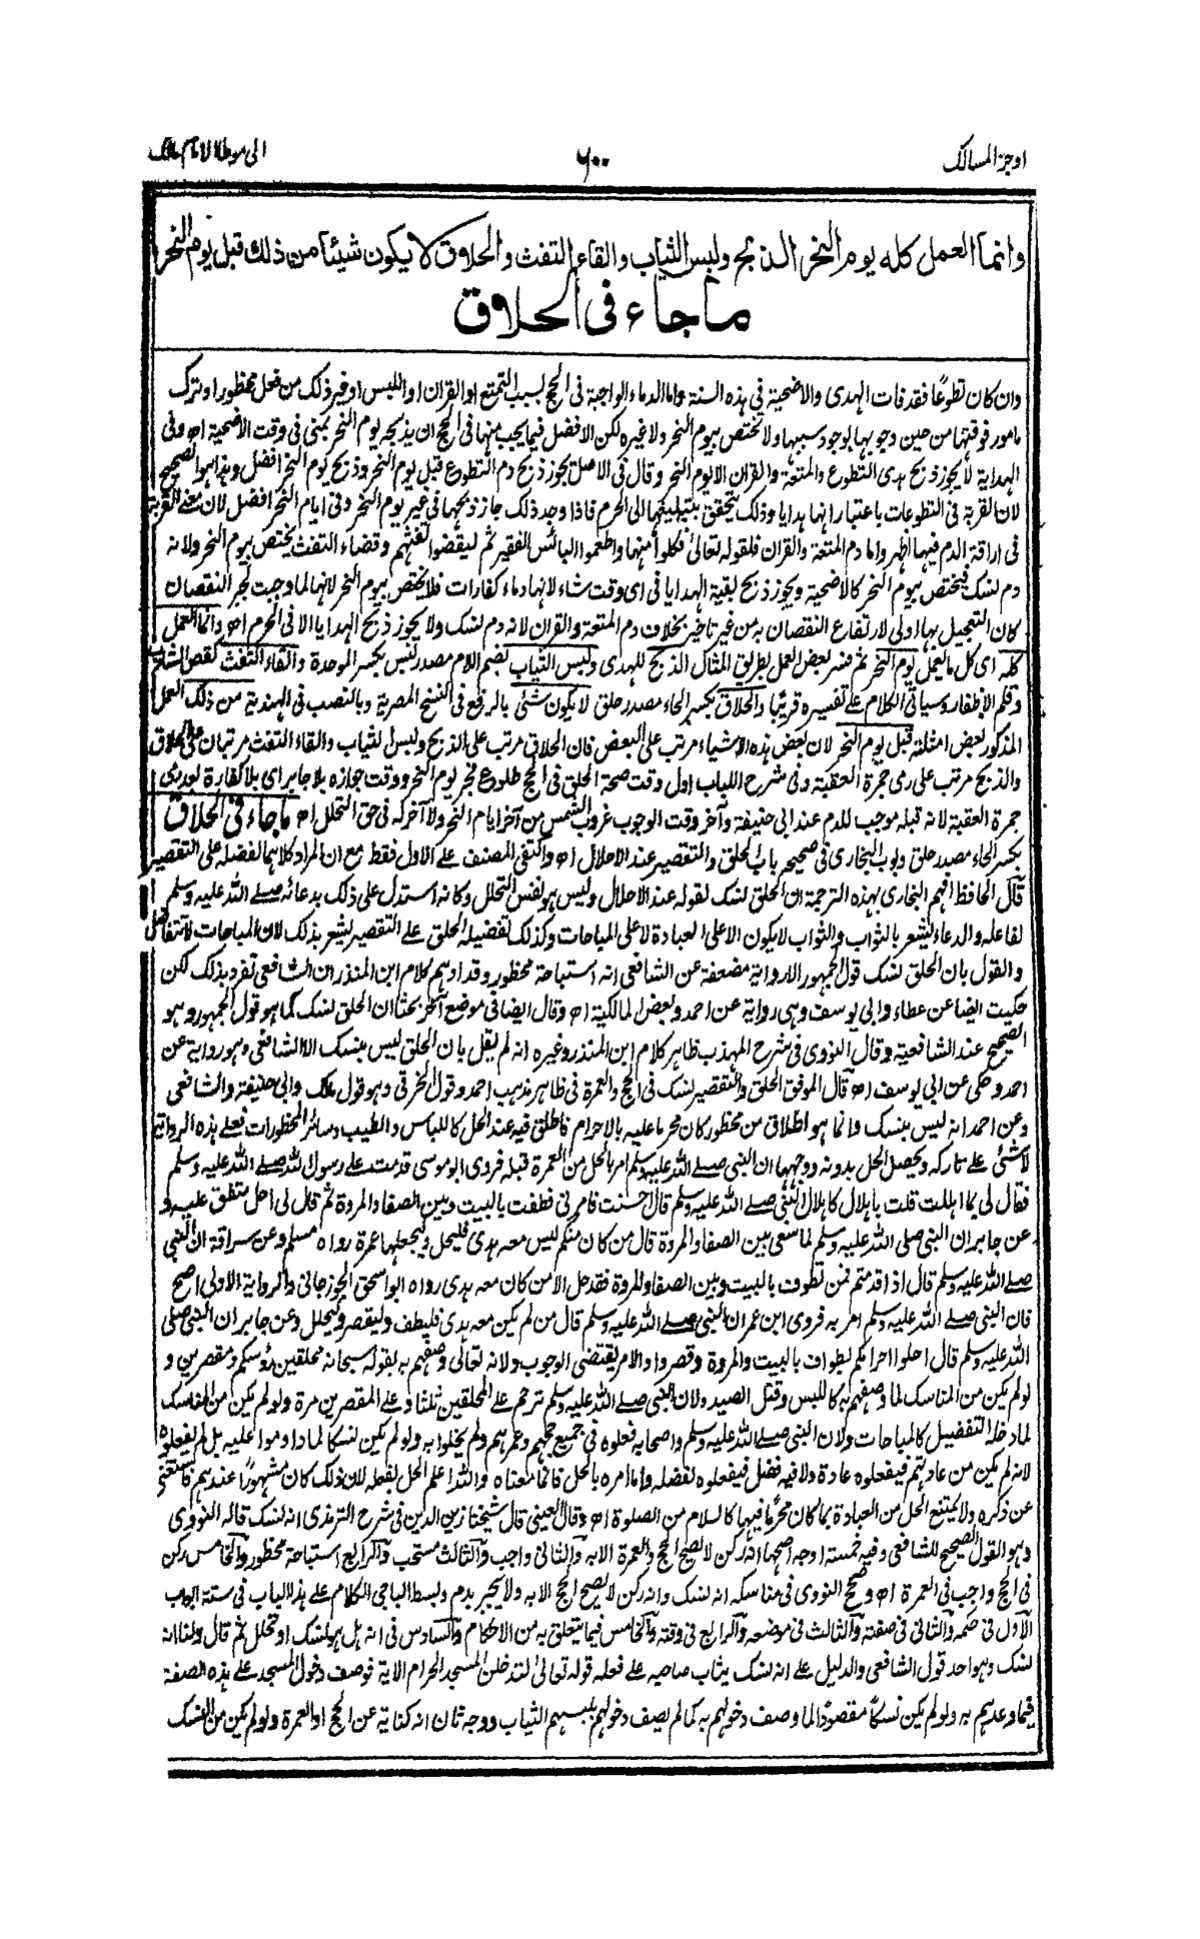 اوجز المسالك
٦٠٠
الى موطا الامام مالك
وانما العمل كله يوم النحر الذبح ولبس الثياب والقاء التفث والحلاق لا يكون شيئا من ذلك قبل يوم النحر
ما جاء في الحلاق
وان كان تطوعًا فقد فات الهدى والاضحية في هذه السنة واما الدماء الواجبة في الحج بسبب التمتع او القران او اللبس او غير ذلك من فعل محظور او ترك
مامور فوقتها من حين وجوبها لوجود سببها ولا تختص بيوم النحر ولا غيره لكن الافضل فيما يجب منها في الحج ان يذبحه يوم النحر بمنى في وقت الاضحية اه وفى
الهداية لا يجوز ذبح هدى التطوع والمتعة والقران الا يوم النحر وقال في الاصل يجوز ذبح دم التطوع قبل يوم النحر وذبح يوم النحر افضل وهذا هو الصحيح
لان القربة في التطوعات باعتبار انها هدايا وذلك يتحقق بتبليغها الى الحرم فاذا وجد ذلك جاز ذبحها في غير يوم النحر وفى ايام النحر افضل لان معنى القربة
فى اراقة الدم فيها اظهر واما دم المتعة والقران فلقوله تعالى فكلوا منها واطعموا البائس الفقير ثم ليقضوا تفثهم وقضاء التفث يختص بيوم النحر ولانه
دم نسك فيختص بيوم النحر كالاضحية ويجوز ذبح بقية الهدايا في اى وقت شاء لانها دماء كفارات فلا يختص بيوم النحر لانها لما وجبت لجبر النقصان
كان التعجيل بها اولى لارتفاع النقصان به من غير تاخير بخلاف دم المتعة والقران لانه دم نسك ولا يجوز ذبح الهدايا الا فى الحرم اه وانما العمل
كله اى كل ما يعمل يوم النحر ثم فسر بعض العمل بطريق المثال الذبح للهدى ولبس الثياب بضم اللام مصدر لبس بكسر الموحدة والقاء التفث كقص الشارب
وقلم الاظفار وسياتى الكلام على تفسيره قريبًا والحلاق بكسر الحاء مصدر حلق لا يكون شئ بالرفع فى النسخ المصرية وبالنصب فى الهندية من ذلك العمل
المذكور بعض امثلته قبل يوم النحر لان بعض هذه الاشياء مرتب على البعض فان الحلاق مرتب على الذبح ولبس الثياب والقاء التفث مرتبان على الحلاق
والذبح مرتب على رمى جمرة العقبة وفى شرح اللباب اول وقت صحة الحلق فى الحج طلوع فجر يوم النحر ووقت جوازه بلا جابر اى بلا كفارة بعد رمى
جمرة العقبة لانه قبله موجب للدم عند ابى حنيفة وآخر وقت الوجوب غروب الشمس من آخر ايام النحر ولا آخر له فى حق التحلل اه ما جاء فى الحلاق
بكسر الحاء مصدر حلق وبوب البخارى فى صحيحه باب الحلق والتقصير عند الاحلال اه واكتفى المصنف على الاول فقط مع ان المراد كلاهما لفضله على التقصير
قال الحافظ افهم البخارى بهذه الترجمة ان الحلق نسك لقوله عند الاحلال وليس هو نفس التحلل وكانه استدل على ذلك بدعائه صلے الله عليه وسلم
لفاعله والدعاء يشعر بالثواب والثواب لا يكون الا على العبادة لا على المباحات وكذلك تفضيله الحلق على التقصير يشعر بذلك لان المباحات لا تتفاضل
والقول بان الحلق نسك قول الجمهور الا رواية مضعفة عن الشافعى انه استباحة محظور وقد اوهم كلام ابن المنذر ان الشافعى تفرد بذلك لكن
حكيت ايضا عن عطاء وابى يوسف وهى رواية عن احمد وبعض المالكية اه وقال ايضا فى موضع آخر بحثا ان الحلق نسك كما هو قول الجمهور وهو
الصحيح عند الشافعية وقال النووى فى شرح المهذب ظاهر كلام ابن المنذر وغيره انه لم يقل بان الحلق ليس بنسك الا الشافعى وهو رواية عن
احمد وحكى عن ابى يوسف اه قال الموفق الحلق والتقصير نسك فى الحج والعمرة فى ظاهر مذهب احمد وقول الخرقى وهو قول مالك وابى حنيفة والشافعى
وعن احمد انه ليس بنسك وانما هو اطلاق من محظور كان محرما عليه بالاحرام فاطلق فيه عند الحل كاللباس والطيب وسائر المحظورات فعلى هذه الرواية
لا شئ على تاركه ويحصل الحل بدونه ووجهها ان النبى صلے الله عليه وسلم امر بالحل من العمرة قبله فروى ابو موسى قدمت على رسول الله صلے الله عليه وسلم
فقال لى بما اهللت قلت باهلال كاهلال النبى صلے الله عليه وسلم قال احسنت فامرنى فطفت بالبيت وبين الصفا والمروة ثم قال لى احل متفق عليه و
عن جابر ان النبى صلى الله عليه وسلم لما سعى بين الصفا والمروة قال من كان منكم ليس معه هدى فليحل وليجعلها عمرة رواه مسلم وعن سراقة ان النبى
صلے الله عليه وسلم قال اذا قدمتم فمن تطوف بالبيت وبين الصفا والمروة فقد حل الا من كان معه هدى رواه ابو اسحق الجوزجانى والرواية الاولى اصح
فان النبى صلے الله عليه وسلم امر به فروى ابن عمر ان النبى صلے الله عليه وسلم قال من لم يكن معه هدى فليطف وليقصر وليحلل وعن جابر ان النبى صلى
الله عليه وسلم قال احلوا احرامكم بطواف بالبيت والمروة وقصروا والامر يقتضى الوجوب ولانه تعالى وصفهم به بقوله سبحانه محلقين رؤسكم ومقصرين و
لو لم يكن من المناسك لما وصفهم به كاللبس وقتل الصيد ولان النبى صلے الله عليه وسلم ترحم على المحلقين ثلثا وعلى المقصرين مرة ولو لم يكن من المناسك
لما دخله التفضيل كالمباحات ولان النبى صلے الله عليه وسلم واصحابه فعلوه فى جميع حجهم وعمرهم ولم يخلوا به ولو لم يكن نسكا لما داوموا عليه بل لم يفعلوه
لانه لم يكن من عادتهم فيفعلوه عادة ولا فيه فضل فيفعلوه لفضله واما امره بالحل فانما معناه والله اعلم الحل بفعله لان ذلك كان مشهورًا عندهم فاستغنى
عن ذكره ولا يمتنع الحل من العبادة بما كان محرمًا فيها كالسلام من الصلوة اه وقال العينى قال شيخنا زين الدين فى شرح الترمذى انه نسك قاله النووى
وهو القول الصحيح للشافعى وفيه خمسة اوجه اصحها انه ركن لا يصح الحج والعمرة الا به والثانى واجب والثالث مستحب والرابع استباحة محظور والخامس ركن
فى الحج واجب فى العمرة اه وصحح النووى فى مناسكه انه نسك وانه ركن لا يصح الحج الا به ولا يجبر بدم وبسط الباجى الكلام على هذا الباب فى ستة ابواب
الاول فى حكمه والثانى فى صفته والثالث فى موضعه والرابع فى وقته والخامس فيما يتعلق به من الاحكام والسادس فى انه هل هو نسك او تحلل ثم قال ولنا انه
نسك وهو احد قول الشافعى والدليل على انه نسك يثاب صاحبه على فعله قوله تعالى لتدخلن المسجد الحرام الاية فوصف دخول المسجد على هذه الصفة
فيما وعدهم به ولو لم يكن نسكًا مقصودًا لما وصف دخولهم به كما لم يصف دخولهم بلبسهم الثياب ووجه ثان انه كناية عن الحج او العمرة ولو لم يكن من النسك